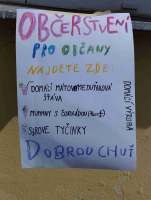 OBČERSTVENÍ
PRO OBČANY
NAJDETE ZDE:
DOMÁCÍ MÁTOVOMEDUŇKOVÁ
ŠŤÁVA
MUFFINY S ČOKOLÁDOU
SÝROVÉ TYČINKY
DOBROU CHUŤ
DOMÁCÍ VÝROBA